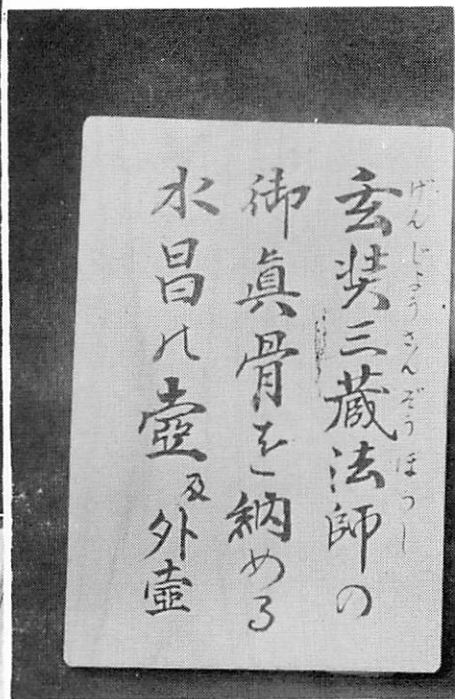 げんじょうさんぞうほつし
玄奘三蔵法師の
御眞骨を納める
水晶の壺及外壺